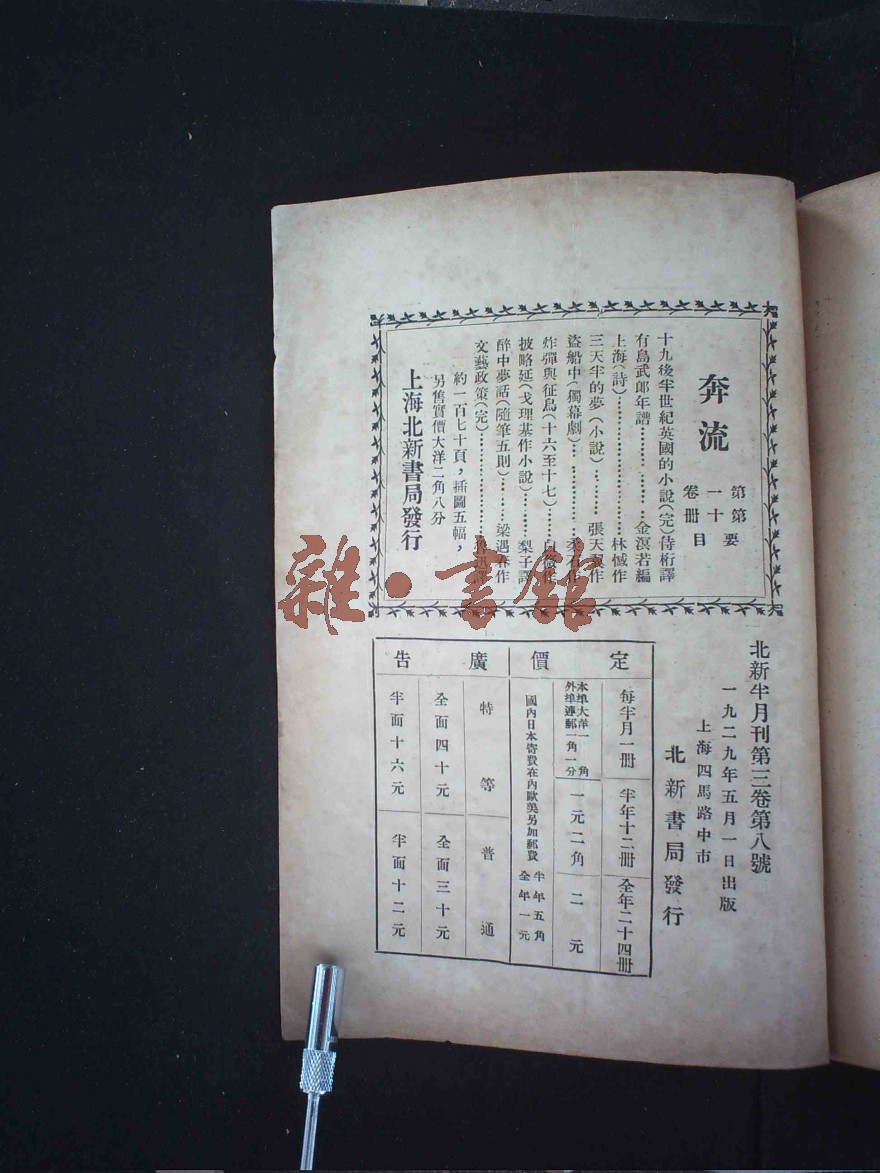 奔流
第一卷
第十冊
要目
十九後半世紀英國的小說(完)侍桁譯
有島武郎年譜………………金溟若編
上海(詩)………………林憾作
三天半的夢(小說)………張天翼作
盜船中(獨幕劇)……………柔石作
炸彈與征鳥(十六至十七)……白薇作
披略延(戈理基作小說)……梨子譯
醉中夢話(隨筆五則)……梁遇春作
文藝政策(完)………………
約一百七十頁，插圖五幅，
另售實價大洋二角八分
上海北新書局發行
北新半月刊第三卷第八號
一九二九年五月一日出版
上海四馬路中市
北新書局發行
定價
每半月一冊 半年十二冊 全年二十四冊
本埠大洋一角 外埠連郵一角一分 一元二角 二元
國內日本寄費在內歐美另加郵費 半年五角 全年一元
廣告
特等 普通
全面四十元 全面三十元
半面十六元 半面十二元
雜·書館